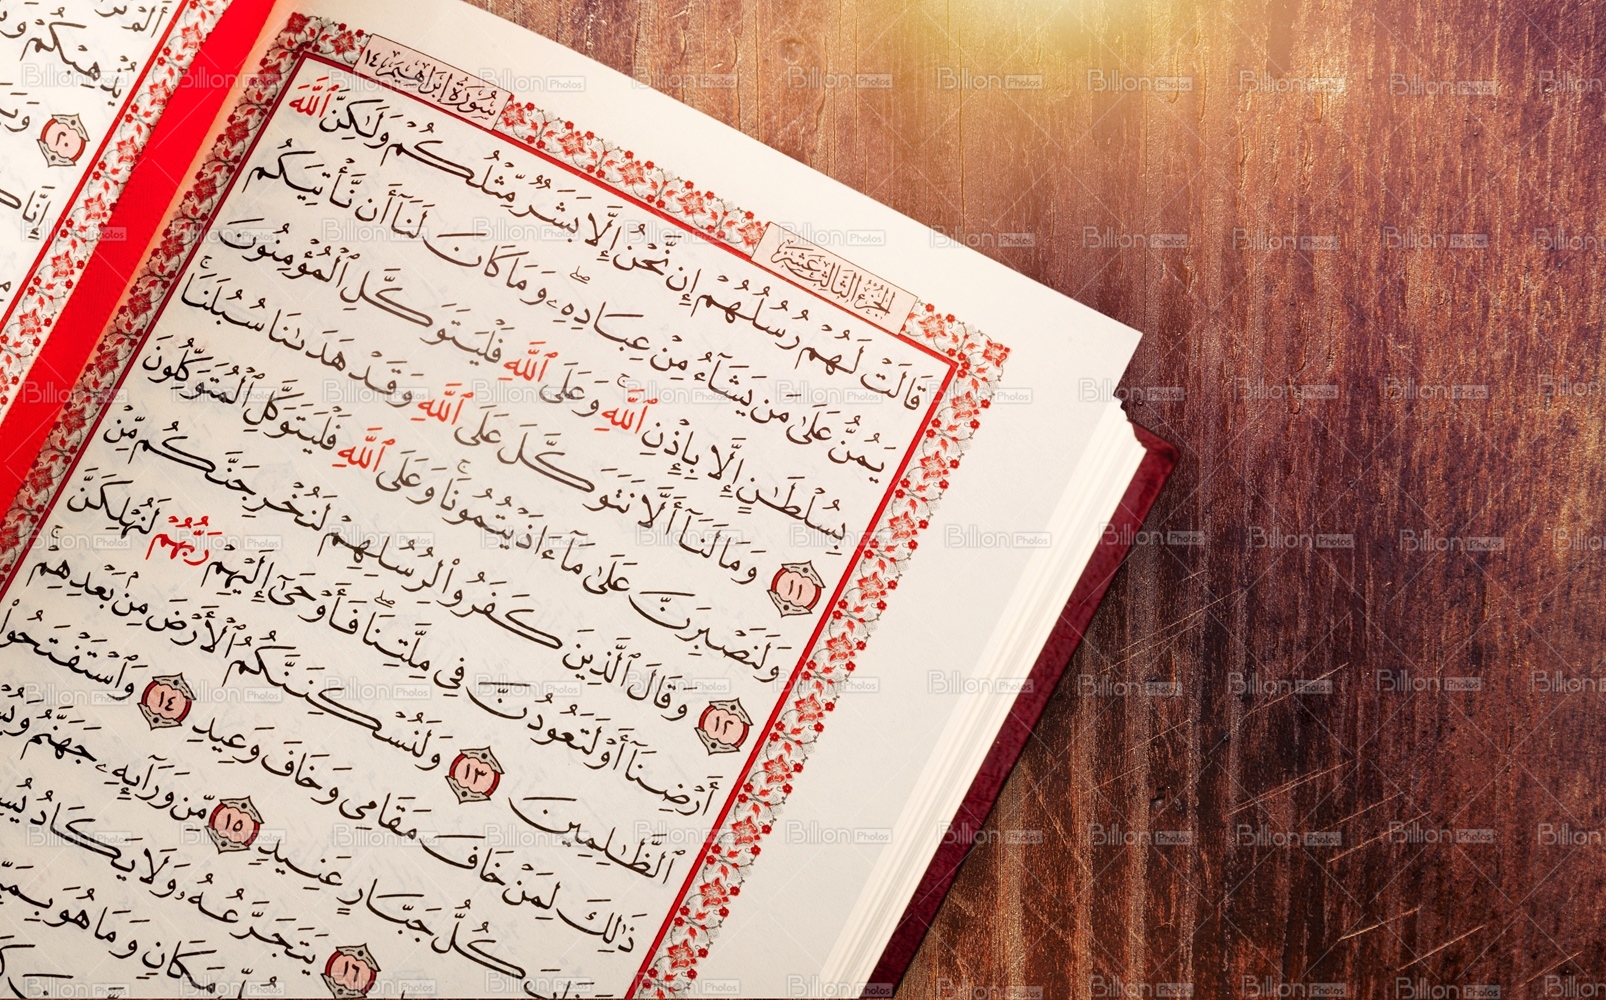 سُورَةُ إِبْرَاهِيمَ ١٤
الجُزْءُ الثَّالِثَ عَشَرَ
قَالَتْ لَهُمْ رُسُلُهُمْ إِن نَّحْنُ إِلَّا بَشَرٌ مِّثْلُكُمْ وَلَـٰكِنَّ ٱللَّهَ
يَمُنُّ عَلَىٰ مَن يَشَآءُ مِنْ عِبَادِهِۦ ۖ وَمَا كَانَ لَنَآ أَن نَّأْتِيَكُم
بِسُلْطَـٰنٍ إِلَّا بِإِذْنِ ٱللَّهِ ۚ وَعَلَى ٱللَّهِ فَلْيَتَوَكَّلِ ٱلْمُؤْمِنُونَ
١١ وَمَا لَنَآ أَلَّا نَتَوَكَّلَ عَلَى ٱللَّهِ وَقَدْ هَدَىٰنَا سُبُلَنَا ۚ
وَلَنَصْبِرَنَّ عَلَىٰ مَآ ءَاذَيْتُمُونَا ۚ وَعَلَى ٱللَّهِ فَلْيَتَوَكَّلِ ٱلْمُتَوَكِّلُونَ
١٢ وَقَالَ ٱلَّذِينَ كَفَرُوا۟ لِرُسُلِهِمْ لَنُخْرِجَنَّكُم مِّنْ
أَرْضِنَآ أَوْ لَتَعُودُنَّ فِى مِلَّتِنَا ۖ فَأَوْحَىٰٓ إِلَيْهِمْ رَبُّهُمْ لَنُهْلِكَنَّ
ٱلظَّـٰلِمِينَ ١٣ وَلَنُسْكِنَنَّكُمُ ٱلْأَرْضَ مِنۢ بَعْدِهِمْ ۚ
ذَٰلِكَ لِمَنْ خَافَ مَقَامِى وَخَافَ وَعِيدِ ١٤ وَٱسْتَفْتَحُوا۟
كُلُّ جَبَّارٍ عَنِيدٍ ١٥ مِّن وَرَآئِهِۦ جَهَنَّمُ
يَتَجَرَّعُهُۥ وَلَا يَكَادُ
مَكَانٍ وَمَا هُوَ
١٦
يُذْهِبْكُمْ
٢٠
إِنَّا
Billion Photos